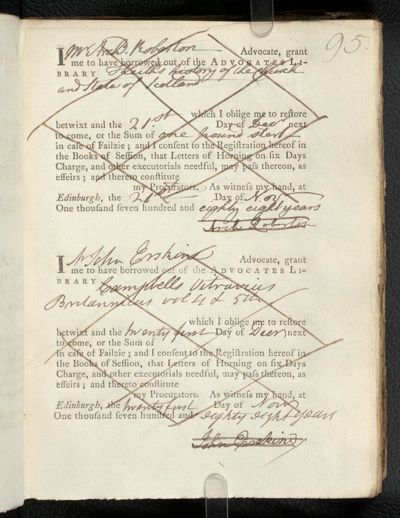 95.
I Mr Arch. B. Roberton Advocate, grant
me to have borrowed out of the ADVOCATES LI-
BRARY Keith's history of the Church
and State of Scotland
which I oblige me to restore
betwixt and the 21st Day of Decr next
to come, or the Sum of one pound sterl
in case of Failzie; and I consent to the Registration hereof in
the Books of Session, that Letters of Horning on six Days
Charge, and other executorials needful, may pass thereon, as
effeirs; and thereto constitute
my Procurators. As witness my hand, at
Edinburgh, the 21st Day of Nov
One thousand seven hundred and eighty eight years
Roberton
I Mr John Erskine Advocate, grant
me to have borrowed out of the ADVOCATES LI-
BRARY Campbells Vitruvius
Britannicus vol 4 & 5th
which I oblige me to restore
betwixt and the twenty first Day of Decr next
to come, or the Sum of
in case of Failzie; and I consent to the Registration hereof in
the Books of Session, that Letters of Horning on six Days
Charge, and other executorials needful, may pass thereon, as
effeirs; and thereto constitute
my Procurators. As witness my hand, at
Edinburgh, the twenty first Day of Novr
One thousand seven hundred and eighty eight years
John Erskine